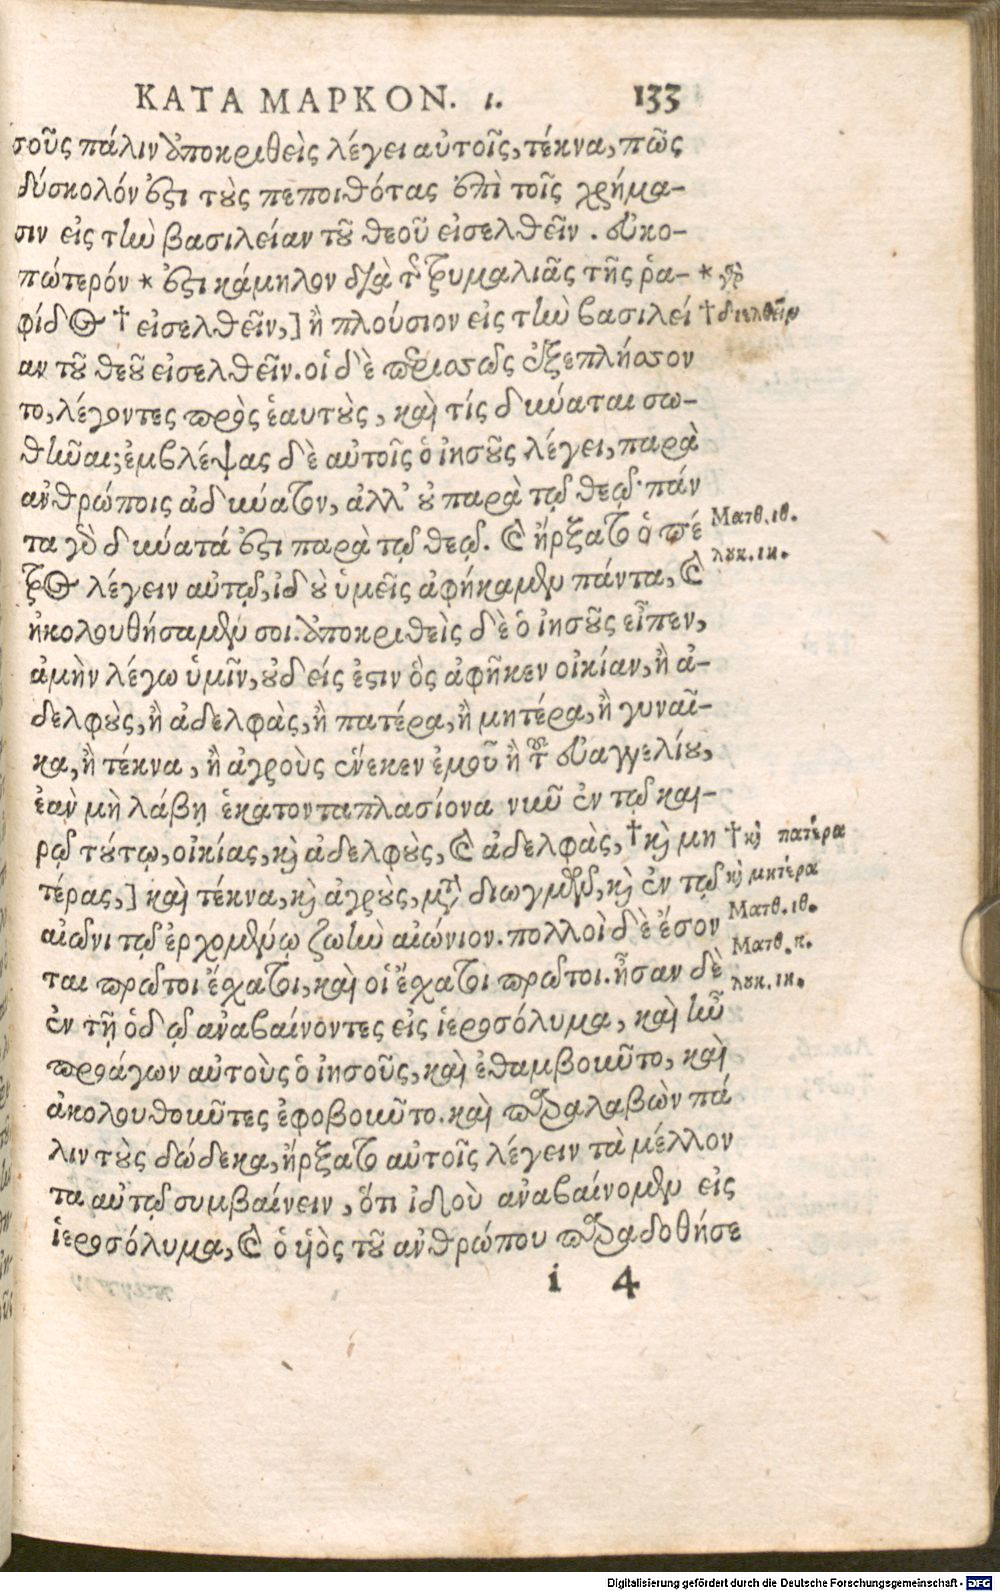 ΚΑΤΑ ΜΑΡΚΟΝ. ι. 133
σοῦς πάλιν ἀποκριθεὶς λέγει αὐτοῖς, τέκνα, πῶς
δύσκολόν ἐστι τοὺς πεποιθότας ἐπὶ τοῖς χρήμα-
σιν εἰς τὴν βασιλείαν τοῦ θεοῦ εἰσελθεῖν. εὐκο-
πώτερόν * ἐστι κάμηλον διὰ τῆς τρυμαλιᾶς τῆς ῥα- * γὰρ
φίδος † εἰσελθεῖν,] ἢ πλούσιον εἰς τὴν βασιλεί † διελθεῖν
αν τοῦ θεοῦ εἰσελθεῖν. οἱ δὲ περισσῶς ἐξεπλήσσον
το, λέγοντες πρὸς ἑαυτοὺς, καὶ τίς δύναται σω-
θῆναι; ἐμβλέψας δὲ αὐτοῖς ὁ ἰησοῦς λέγει, παρὰ
ἀνθρώποις ἀδύνατον, ἀλλ' οὐ παρὰ τῷ θεῷ· πάν
τα γὰρ δύνατά ἐστι παρὰ τῷ θεῷ. καὶ ἤρξατο ὁ πέ Ματθ. ιθ.
τρος λέγειν αὐτῷ, ἰδοὺ ὑμεῖς ἀφήκαμεν πάντα, καὶ λουκ. ιη.
ἠκολουθήσαμέν σοι. ἀποκριθεὶς δὲ ὁ ἰησοῦς εἶπεν,
ἀμὴν λέγω ὑμῖν, οὐδείς ἐστιν ὃς ἀφῆκεν οἰκίαν, ἢ ἀ-
δελφοὺς, ἢ ἀδελφὰς, ἢ πατέρα, ἢ μητέρα, ἢ γυναῖ-
κα, ἢ τέκνα, ἢ ἀγροὺς ἕνεκεν ἐμοῦ ἢ τοῦ εὐαγγελίου,
ἐὰν μὴ λάβῃ ἑκατονταπλασίονα νῦν ἐν τῷ και-
ρῷ τούτῳ, οἰκίας, καὶ ἀδελφοὺς, καὶ ἀδελφὰς, † καὶ μη † καὶ πατέρα
τέρας,] καὶ τέκνα, καὶ ἀγροὺς, μετὰ διωγμῶν, καὶ ἐν τῷ καὶ μητέρα
αἰῶνι τῷ ἐρχομένῳ ζωὴν αἰώνιον. πολλοὶ δὲ ἔσον Ματθ. ιθ.
ται πρῶτοι ἔσχατοι, καὶ οἱ ἔσχατοι πρῶτοι. ἦσαν δὲ Ματθ. κ.
ἐν τῇ ὁδῷ ἀναβαίνοντες εἰς ἱεροσόλυμα, καὶ ἦν λουκ. ιη.
προάγων αὐτοὺς ὁ ἰησοῦς, καὶ ἐθαμβοῦντο, καὶ
ἀκολουθοῦντες ἐφοβοῦντο. καὶ παραλαβὼν πά
λιν τοὺς δώδεκα, ἤρξατο αὐτοῖς λέγειν τὰ μέλλον
τα αὐτῷ συμβαίνειν, ὅτι ἰδοὺ ἀναβαίνομεν εἰς
ἱεροσόλυμα, καὶ ὁ υἱὸς τοῦ ἀνθρώπου παραδοθήσε
i 4
Digitalisierung gefördert durch die Deutsche Forschungsgemeinschaft - DFG